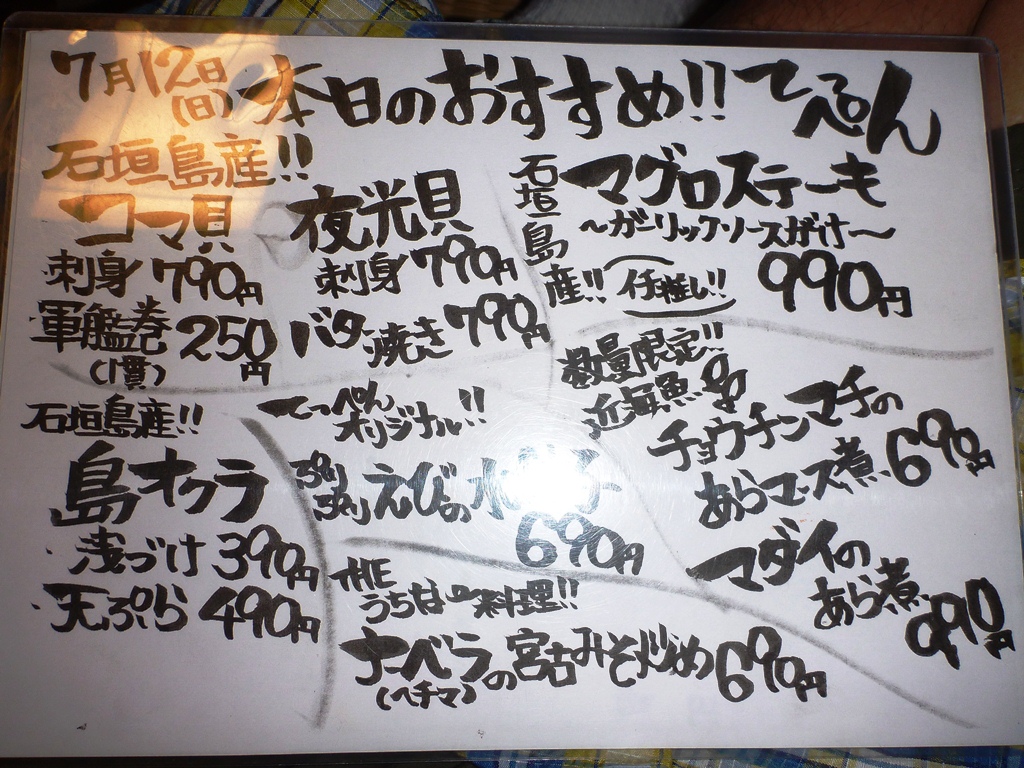 7月12日(日) 本日のおすすめ!! てっぺん
石垣島産!!
コマ貝
刺身 790円
軍艦巻 250円
(1貫)
夜光貝
刺身 790円
バター焼き 790円
石垣島産!!
マグロステーキ
〜ガーリックソースがけ〜
イチ推し!! 990円
石垣島産!!
島オクラ
浅づけ 390円
天ぷら 490円
てっぺん
オリジナル!!
ぷりぷりえびの水
690円
数量限定!!
近海魚
チョウチンマチの
あらマース煮 690円
マダイの
あら煮 990円
THE
うちなー料理!!
ナーベラの宮古みそ炒め 690円
(ヘチマ)